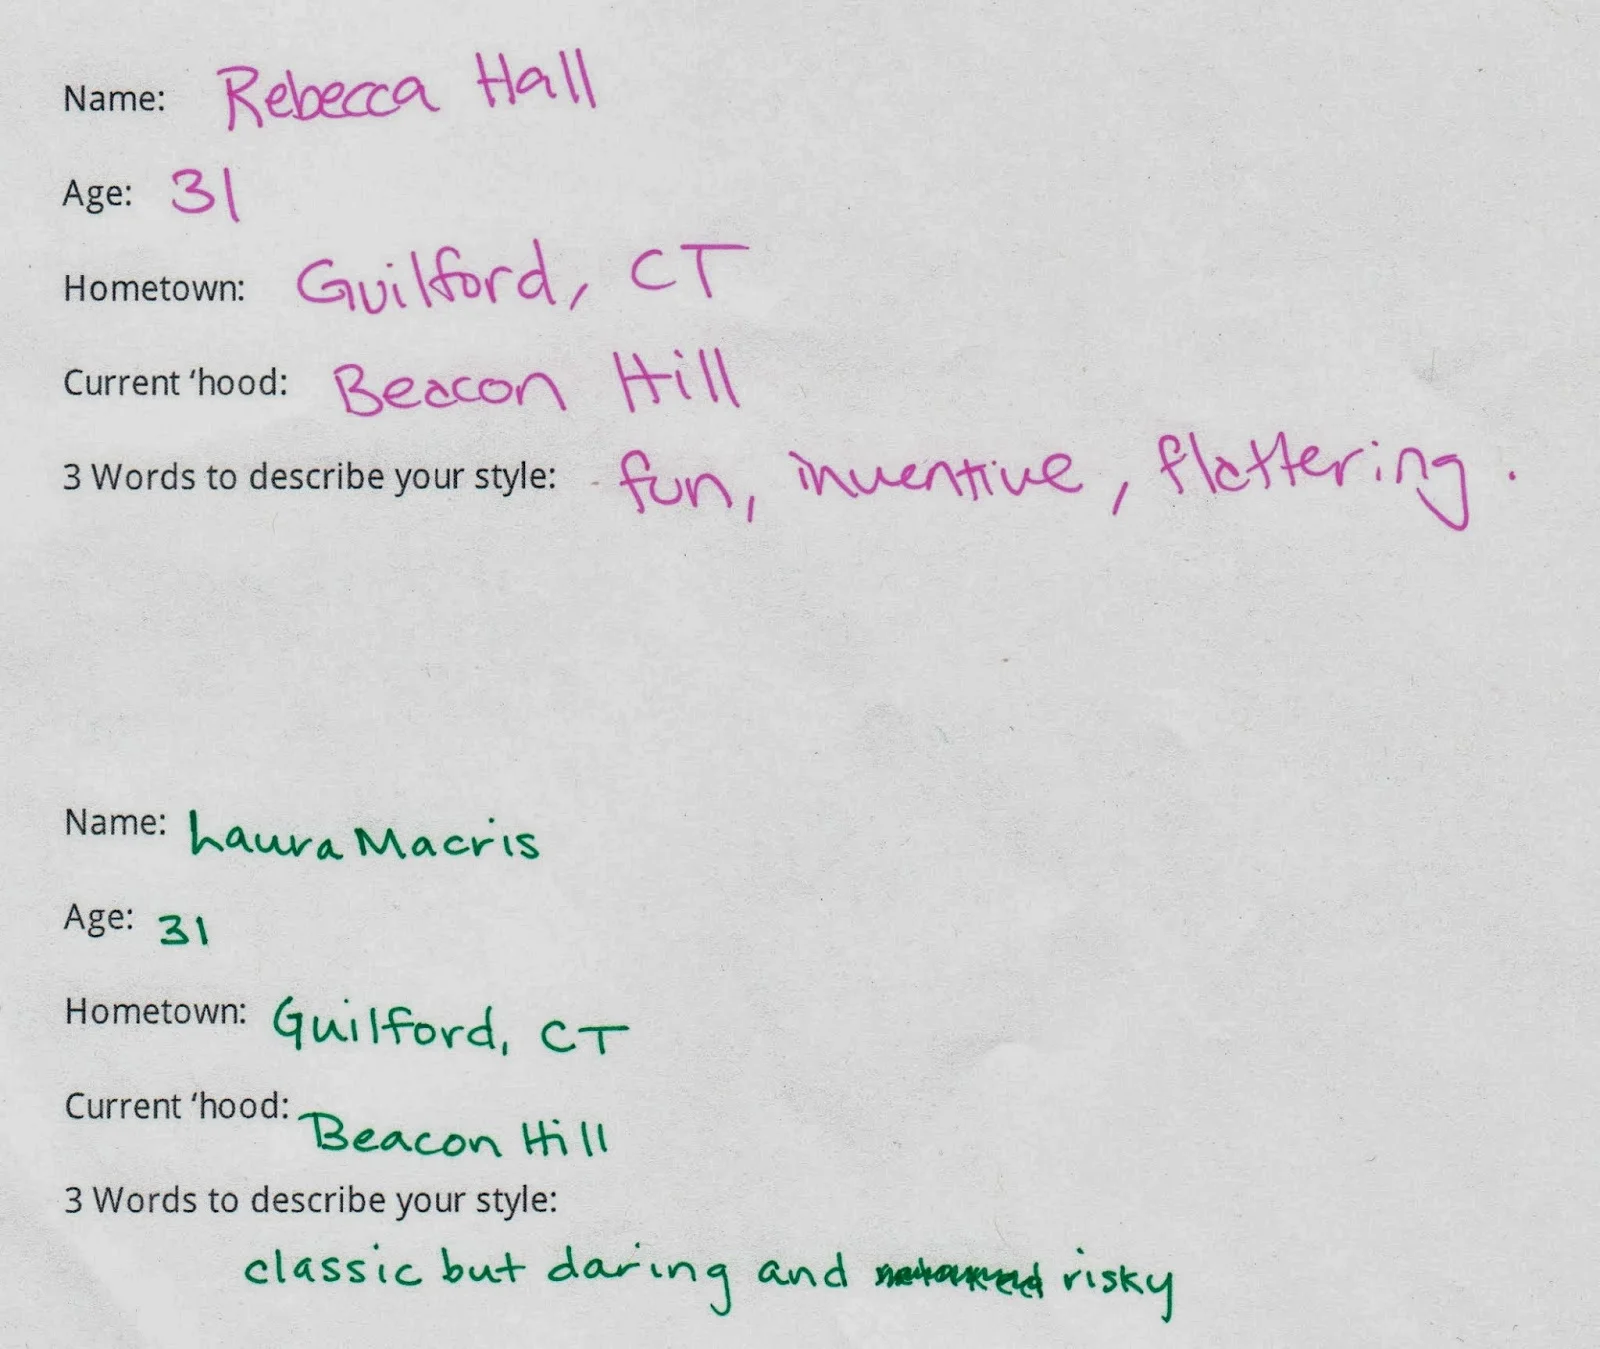 Name: Rebecca Hall
Age: 31
Hometown: Guilford, CT
Current ‘hood: Beacon Hill
3 Words to describe your style: fun, inventive, flattering.
Name: Laura Macris
Age: 31
Hometown: Guilford, CT
Current ‘hood: Beacon Hill
3 Words to describe your style:
classic but daring and risky